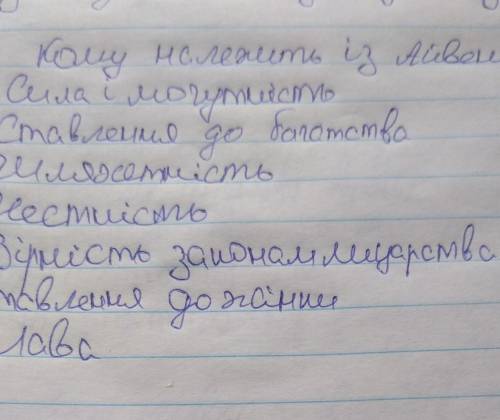 Кому належить із Айвен
Сила і могутність
Ставлення до багатства
Шляхетність
Чесність
Вірність законам лицарства
тавлення до жінки
лава